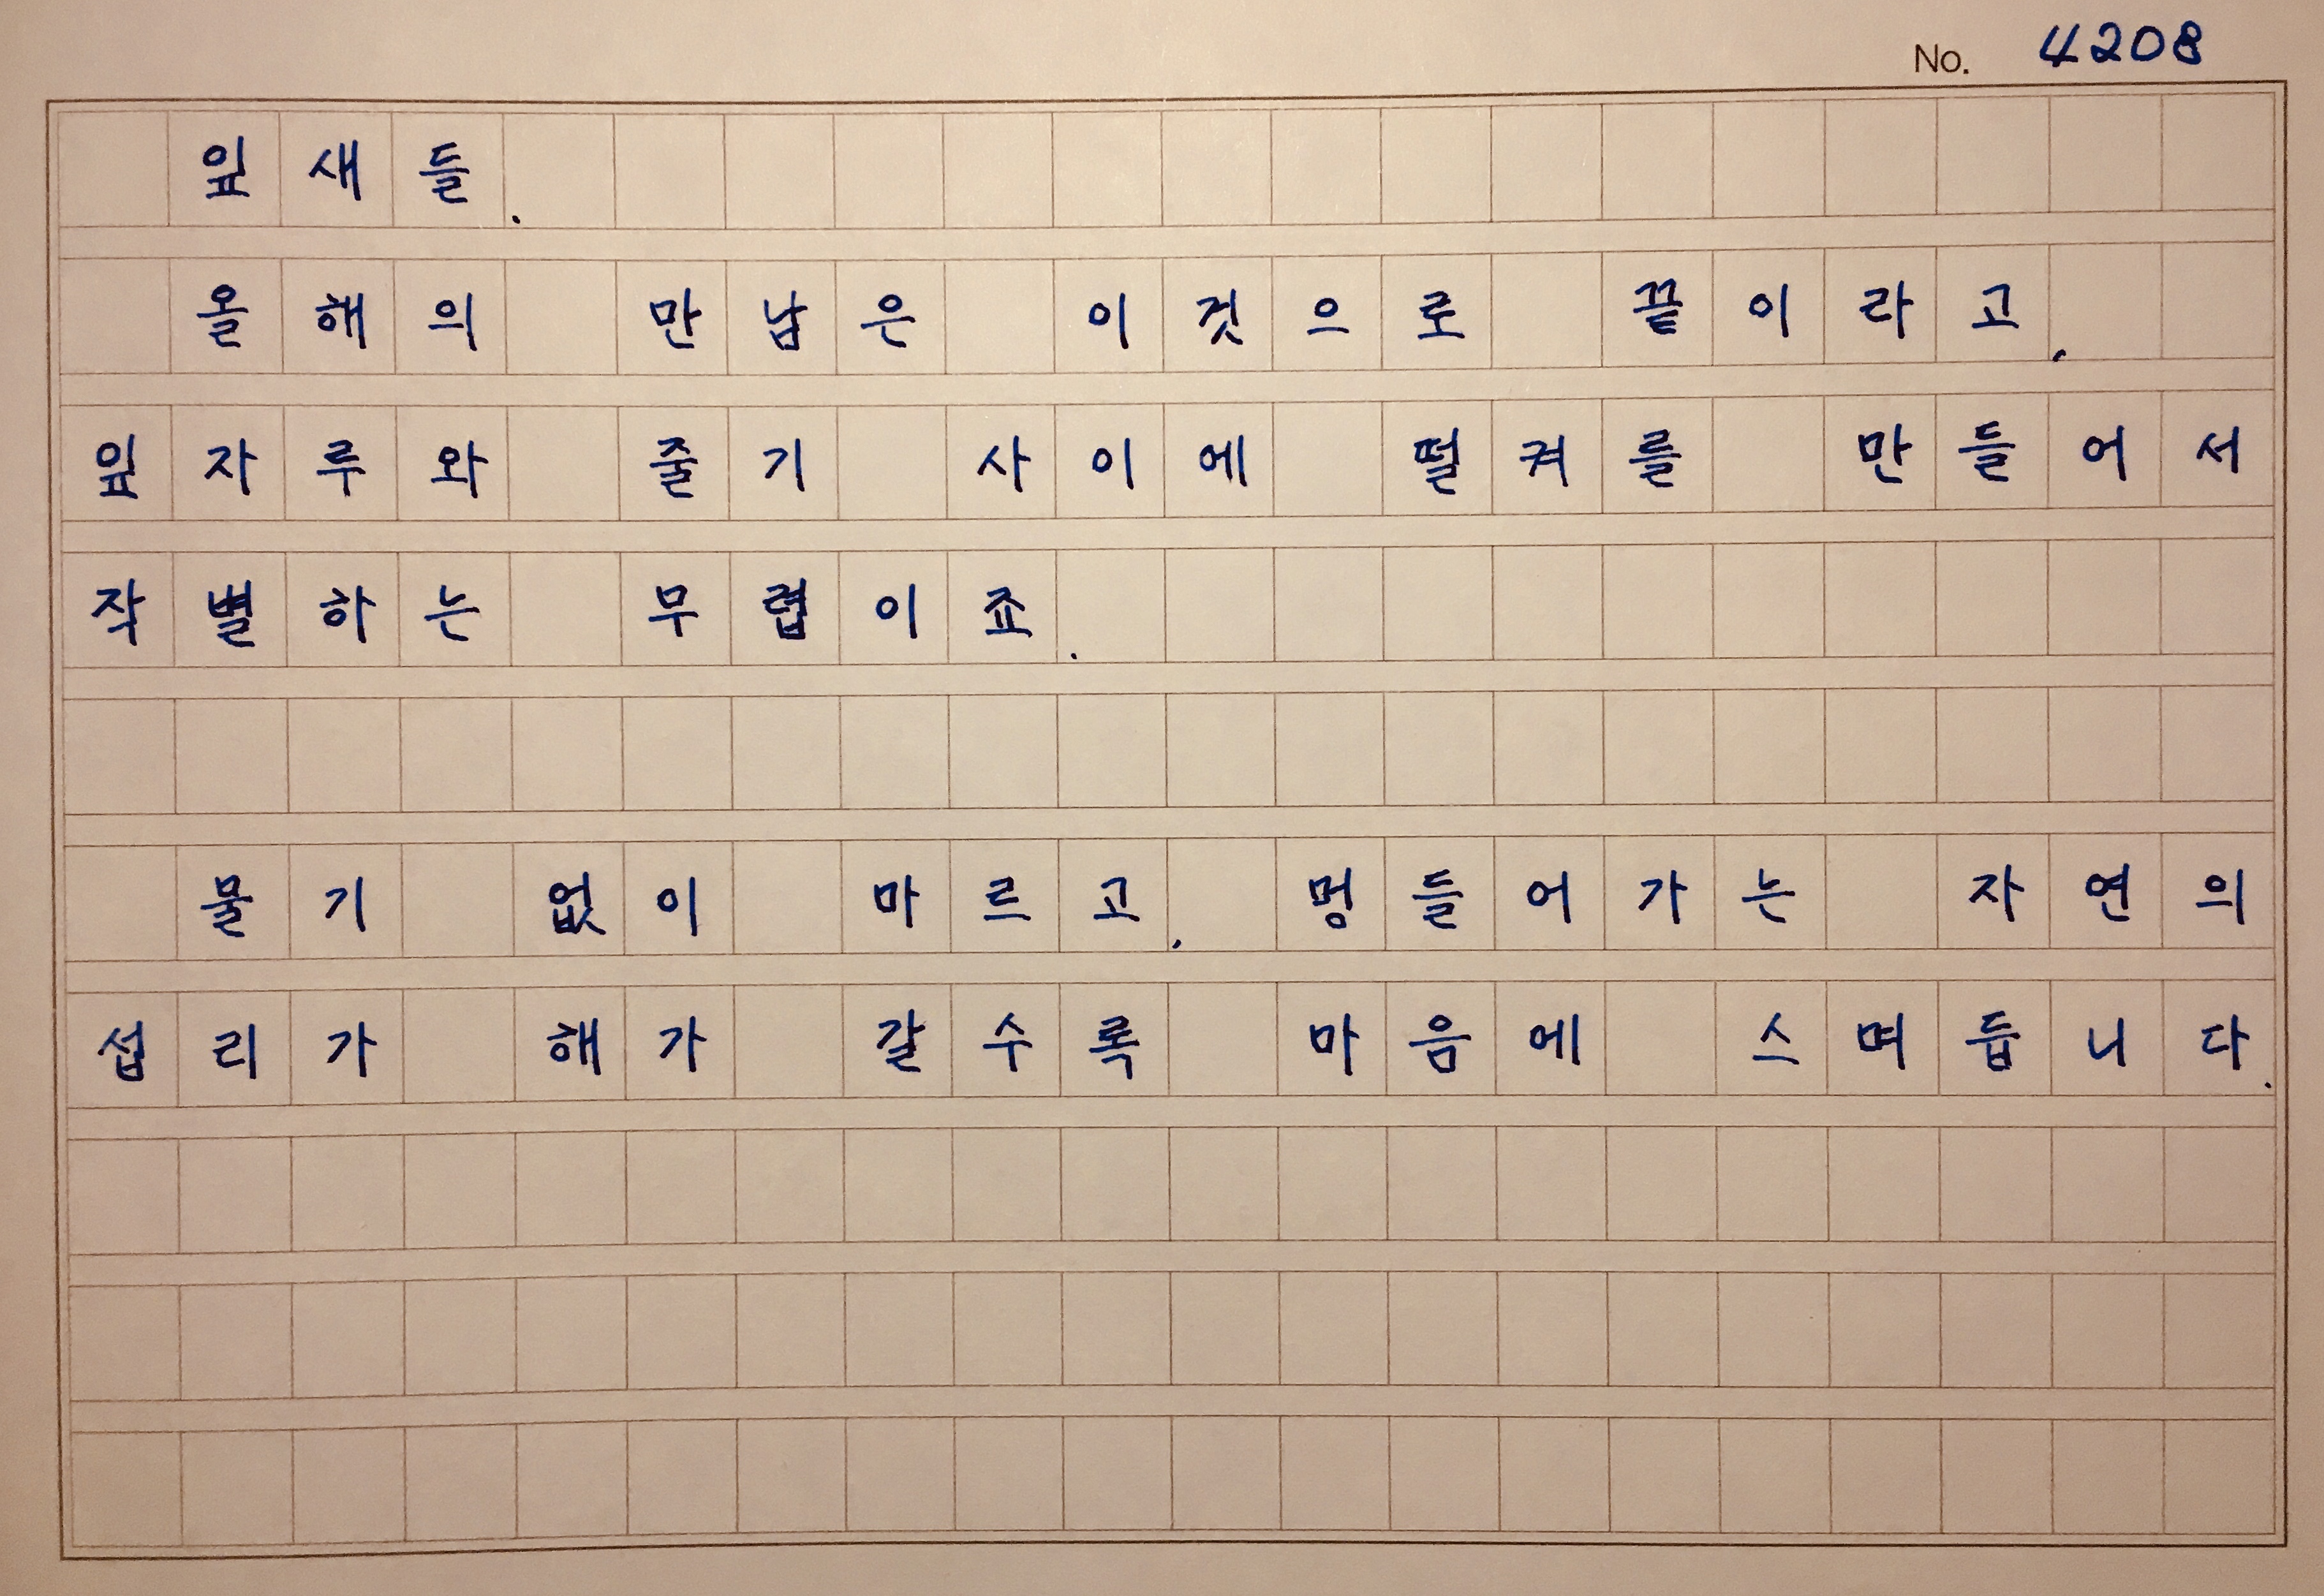 No. 4208
잎새들.
올해의 만남은 이것으로 끝이라고,
잎자루와 줄기 사이에 떨켜를 만들어서
작별하는 무렵이죠.
물기 없이 마르고, 멍들어가는 자연의
섭리가 해가 갈수록 마음에 스며듭니다.